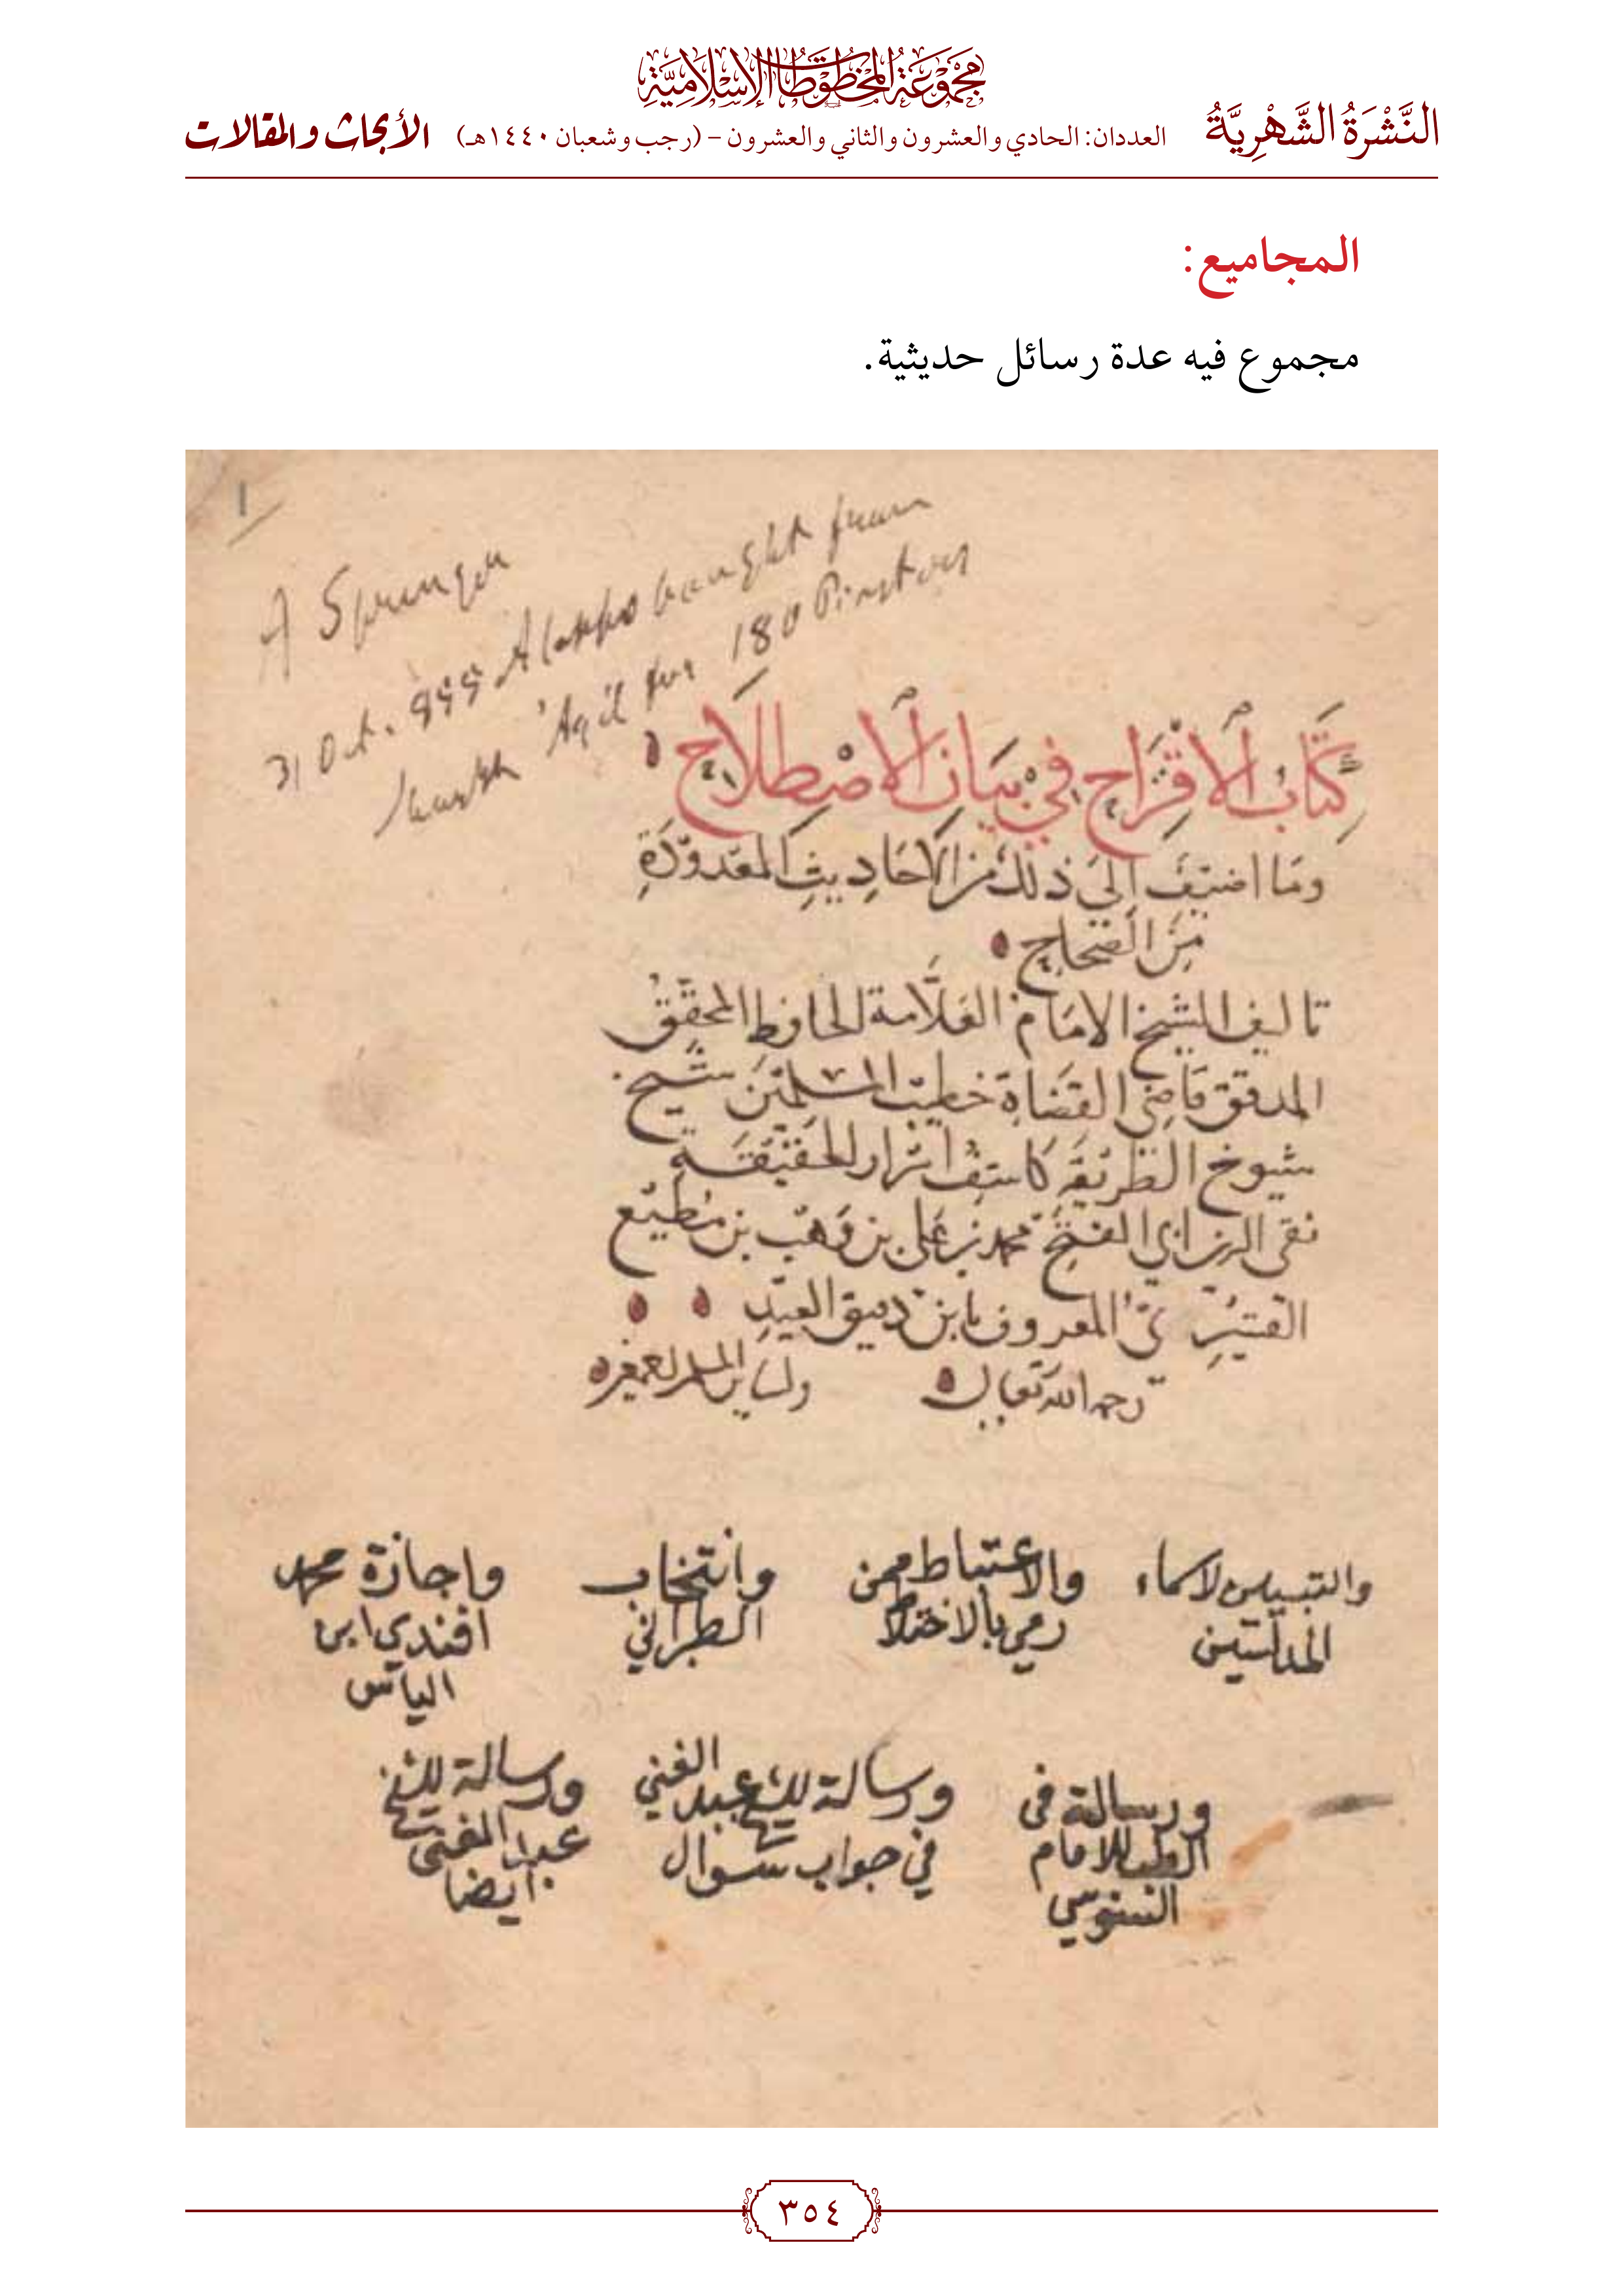 مجموعة المخطوطات الإسلامية
النَّشْرَةُ الشَّهْرِيَّةُ العددان: الحادي والعشرون والثاني والعشرون - (رجب وشعبان ١٤٤٠هـ) الأبحاث والمقالات
المجاميع:
مجموع فيه عدة رسائل حديثية.
1
A Sprenger
31 Oct. Aleppo bought from
'Aqil for 180 Piasters
كِتَابُ الاقْتِرَاحِ فِي بَيَانِ الاصْطِلَاحِ
وَمَا اضِيفَ إِلَى ذلكَ مِنَ الاحَادِيثِ المَعْدُودَةِ
مِنَ الصِّحَاحِ
تاليف الشيخ الامَام العَلَّامة الحافظ المحَقّقْ
المدقق قاضِى القضَاة خطيب المسلمين شيخ
شيوخ الطَريقَه كاشِف اسْرار الحقيقَة
تقى الدين ابى الفتح محمد بن عَلى بن وَهْب بن مُطيع
القُشَيْرِيّ المعروف بابن دقيق العِيدِ
رحمه الله تَعَالى
والتبيين لاسماء
المدلسين
والاغتباط بمن
رمي بالاختلاط
وانتخاب
الطبراني
واجازة محمد
افندي ابن
الياس
ورسالة فى
الطب للامام
السنوسي
ورسالة للشيخ عبد الغني
في جواب سوال
ورسالة للشيخ
عبد الغنى
ايضا
٣٥٤